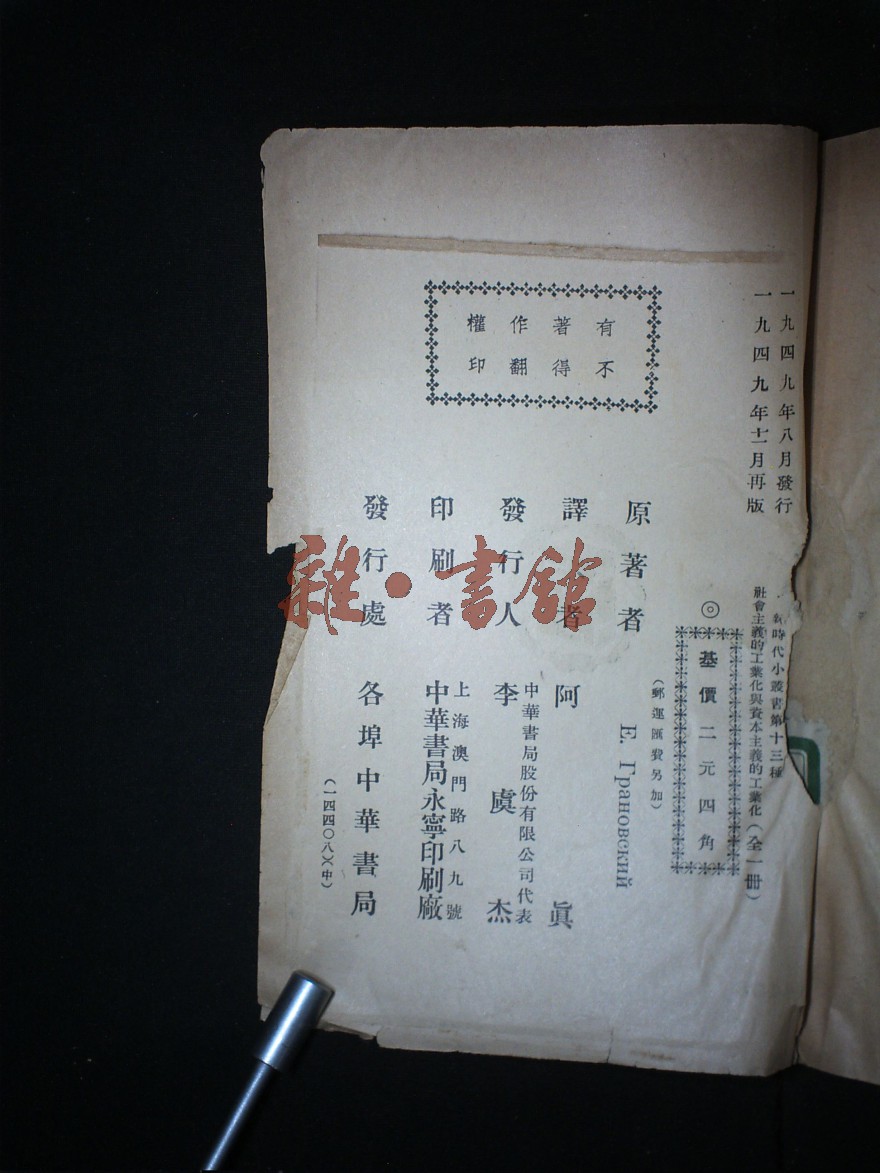 一九四九年八月發行
一九四九年十二月再版
新時代小叢書第十三種
社會主義的工業化與資本主義的工業化（全一冊）
◎基價二元四角
（郵運匯費另加）
有著作權
不得翻印
原著者 Е. Грановский
譯者 阿眞
發行人 李虞杰
中華書局股份有限公司代表
印刷者 中華書局永寧印刷廠
上海澳門路八九號
發行處 各埠中華書局
（一四四〇八）（中）
雜·書館